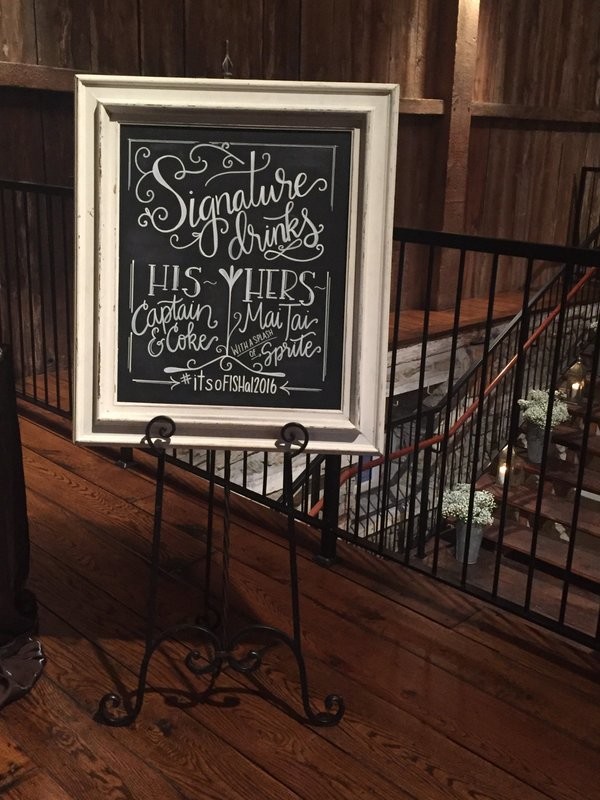 Signature
drinks
HIS~
Captain
& Coke
~HERS~
Mai Tai
WITH A SPLASH
OF Sprite
#itsoFISHal2016